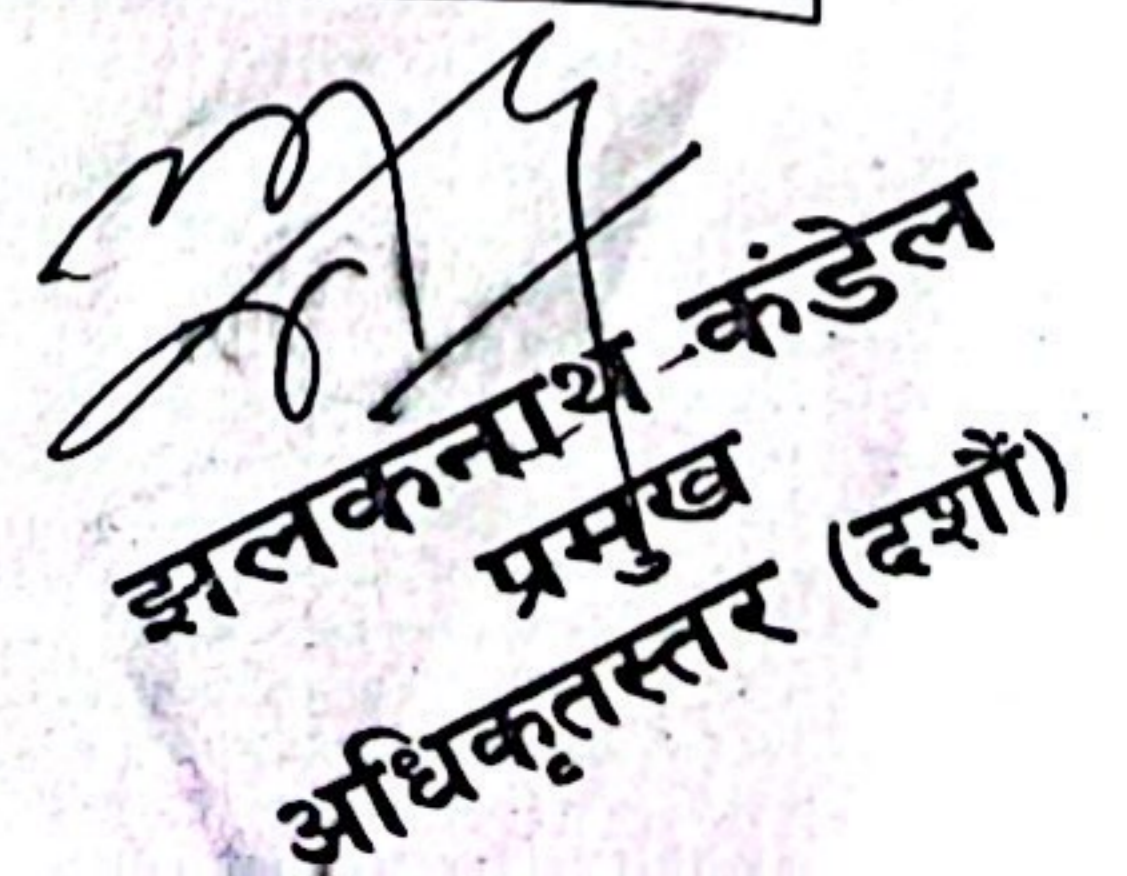 झलकनाथ कंडेल
प्रमुख
अधिकृतस्तर (दशौं)